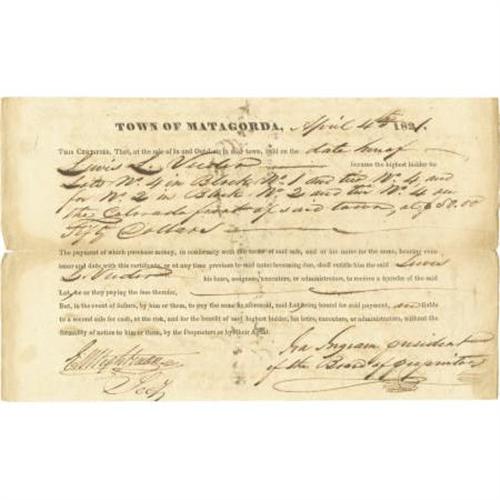 TOWN OF MATAGORDA, April 4th 1831.
THIS CERTIFIES, That, at the sale of In and Outlots, in said town, held on the date hereof
Lewis L. became the highest bidder for
Lots No. 4 in Block No. 1 and No. 4 and
for No. 2 in Block No. 2 and No. 4 on
the Colorado front of said town, at $50.00
Fifty Dollars
The payment of which purchase money, in conformity with the terms of said sale, and or his notes for the same, bearing even
tenor and date with this certificate, or at any time previous to said notes becoming due, shall entitle him the said Lewis
L. his heirs, assigns, executors, or administrators, to receive a transfer of the said
Lot, he or they paying the fees therefor.
But, in the event of failure, by him or them, to pay the same as aforesaid, said Lot being bound for said payment, and liable
to a second sale for cash, at the risk, and for the benefit of said highest bidder, his heirs, executors, or administrators, without the
formality of notice to him or them, by the Proprietors or by their Agent.
Ira Ingram president
of the Board of proprietors
Secy